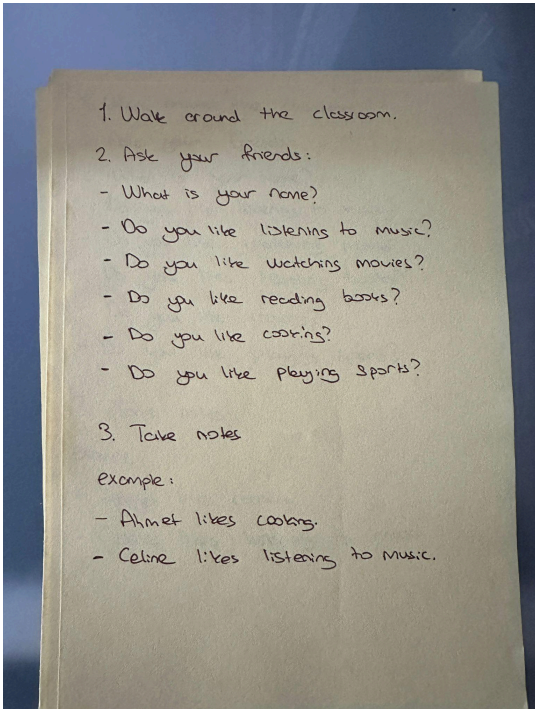 1. Walk around the classroom.
2. Ask your friends:
- What is your name?
- Do you like listening to music?
- Do you like watching movies?
- Do you like reading books?
- Do you like cooking?
- Do you like playing sports?
3. Take notes
example:
- Ahmet likes cooking.
- Celine likes listening to music.